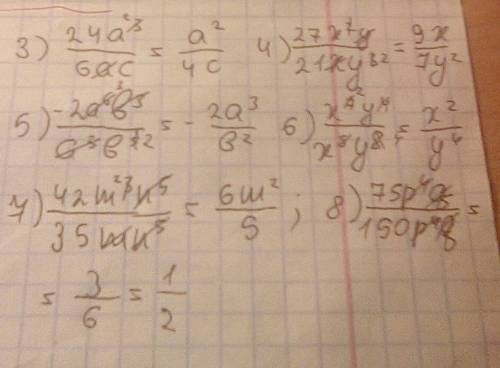 3) 24a²³/6ac = a²/4c 4) 27x⁷y/21xy³² = 9x/7y²
5) -2a⁶b³⁵/a³b⁷² = -2a³/b² 6) x⁴y¹⁴/x⁸y⁸ = x²/y⁴
7) 42m²³n⁵/35mn⁵ = 6m²/5 ; 8) 75p⁴q/150p⁴q =
= 3/6 = 1/2